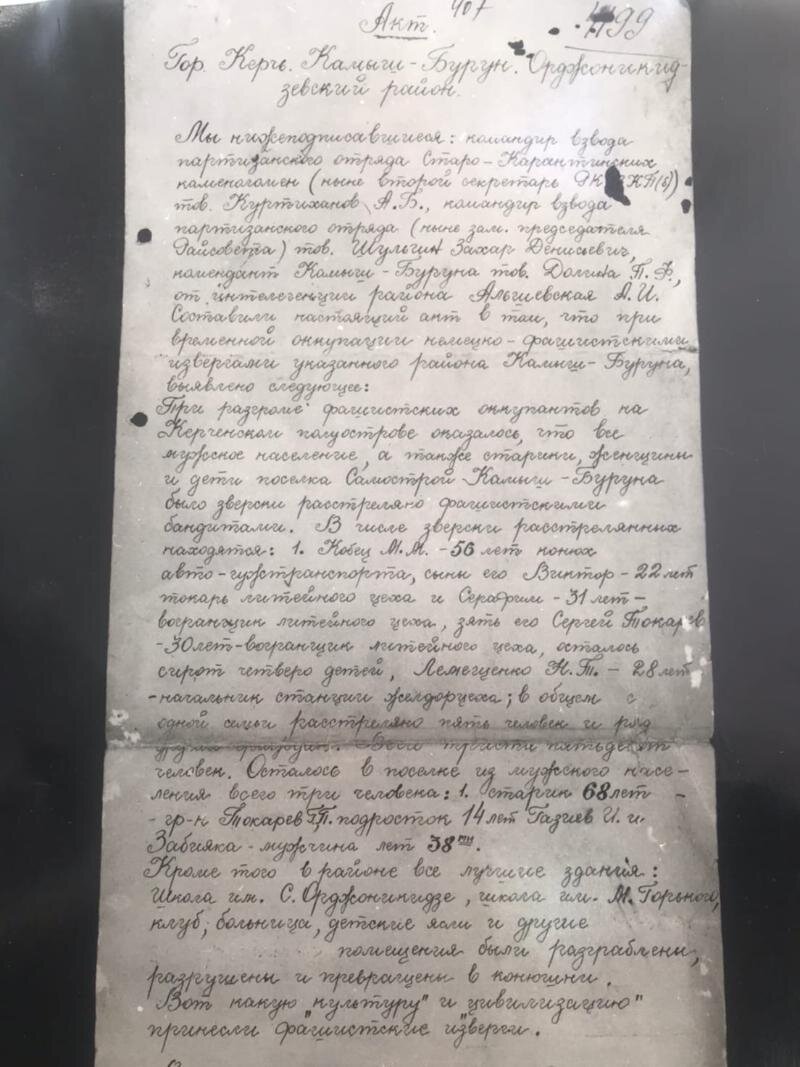 407
Акт. 99
Гор. Керчь. Камыш-Бурун. Орджоникид-
зевский район.
Мы нижеподписавшиеся: командир взвода
партизанского отряда Старо-Карантинских
каменоломен (ныне второй секретарь РК ВКП(б))
тов. Куртиханов А.Б., командир взвода
партизанского отряда (ныне зам. председателя
Райсовета) тов. Шульгин Захар Денисьевич,
комендант Камыш-Буруна тов. П.Ф.,
от интелегенции района А.И.
Составили настоящий акт в том, что при
временной оккупации немецко-фашистскими
извергами указанного района Камыш-Буруна,
выявлено следующее:
При разгроме фашистских оккупантов на
Керченском полуострове оказалось, что все
мужское население, а также старики, женщины
и дети поселка Самострой Камыш-Буруна
было зверски расстреляно фашистскими
бандитами. В числе зверски расстрелянных
находятся: 1. Кобец М.М. - 56 лет конюх
авто-гужтранспорта, сыны его Виктор - 22 лет
токарь литейного цеха и Серафим - 31 лет -
вогранщик литейного цеха, зять его Сергей Токарев
- 30 лет - вогранщик литейного цеха, осталось
сирот четверо детей, Лемещенко Н.Т. - 28 лет
- начальник станции желдорцеха; в общем с
одной семьи расстреляно пять человек и ряд
других Всего триста пятьдесят
человек. Осталось в поселке из мужского насе-
ления всего три человека: 1. старик 68 лет -
- гр-н Токарев Г.П. подросток 14 лет Газиев И. и
Забияка - мужчина лет 38ми.
Кроме того в районе все лучшие здания:
Школа им. С. Орджоникидзе, школа им. М. Горького,
клуб, больница, детские ясли и другие
помещения были разграблены,
разрушены и превращены в конюшни.
Вот какую "культуру" и "цивилизацию"
принесли фашистские изверги.